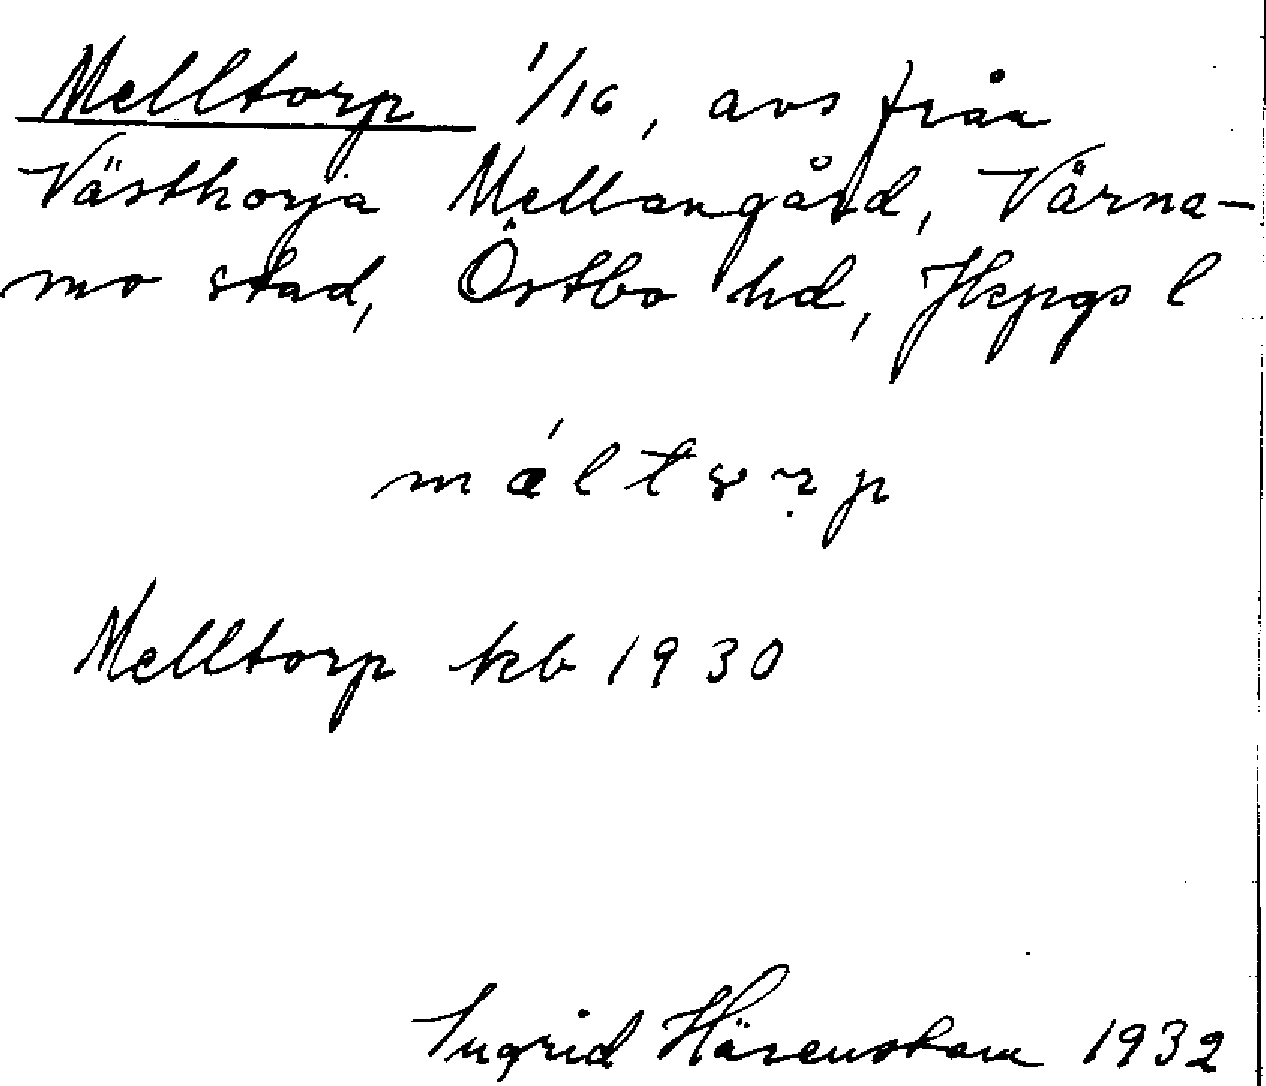 Melltorp 1/16, avs från
Västhorja Mellangård, Värna-
mo stad, Östbo hd, Jkpgs l
Melltorp kb 1930
Ingrid Härenstam 1932